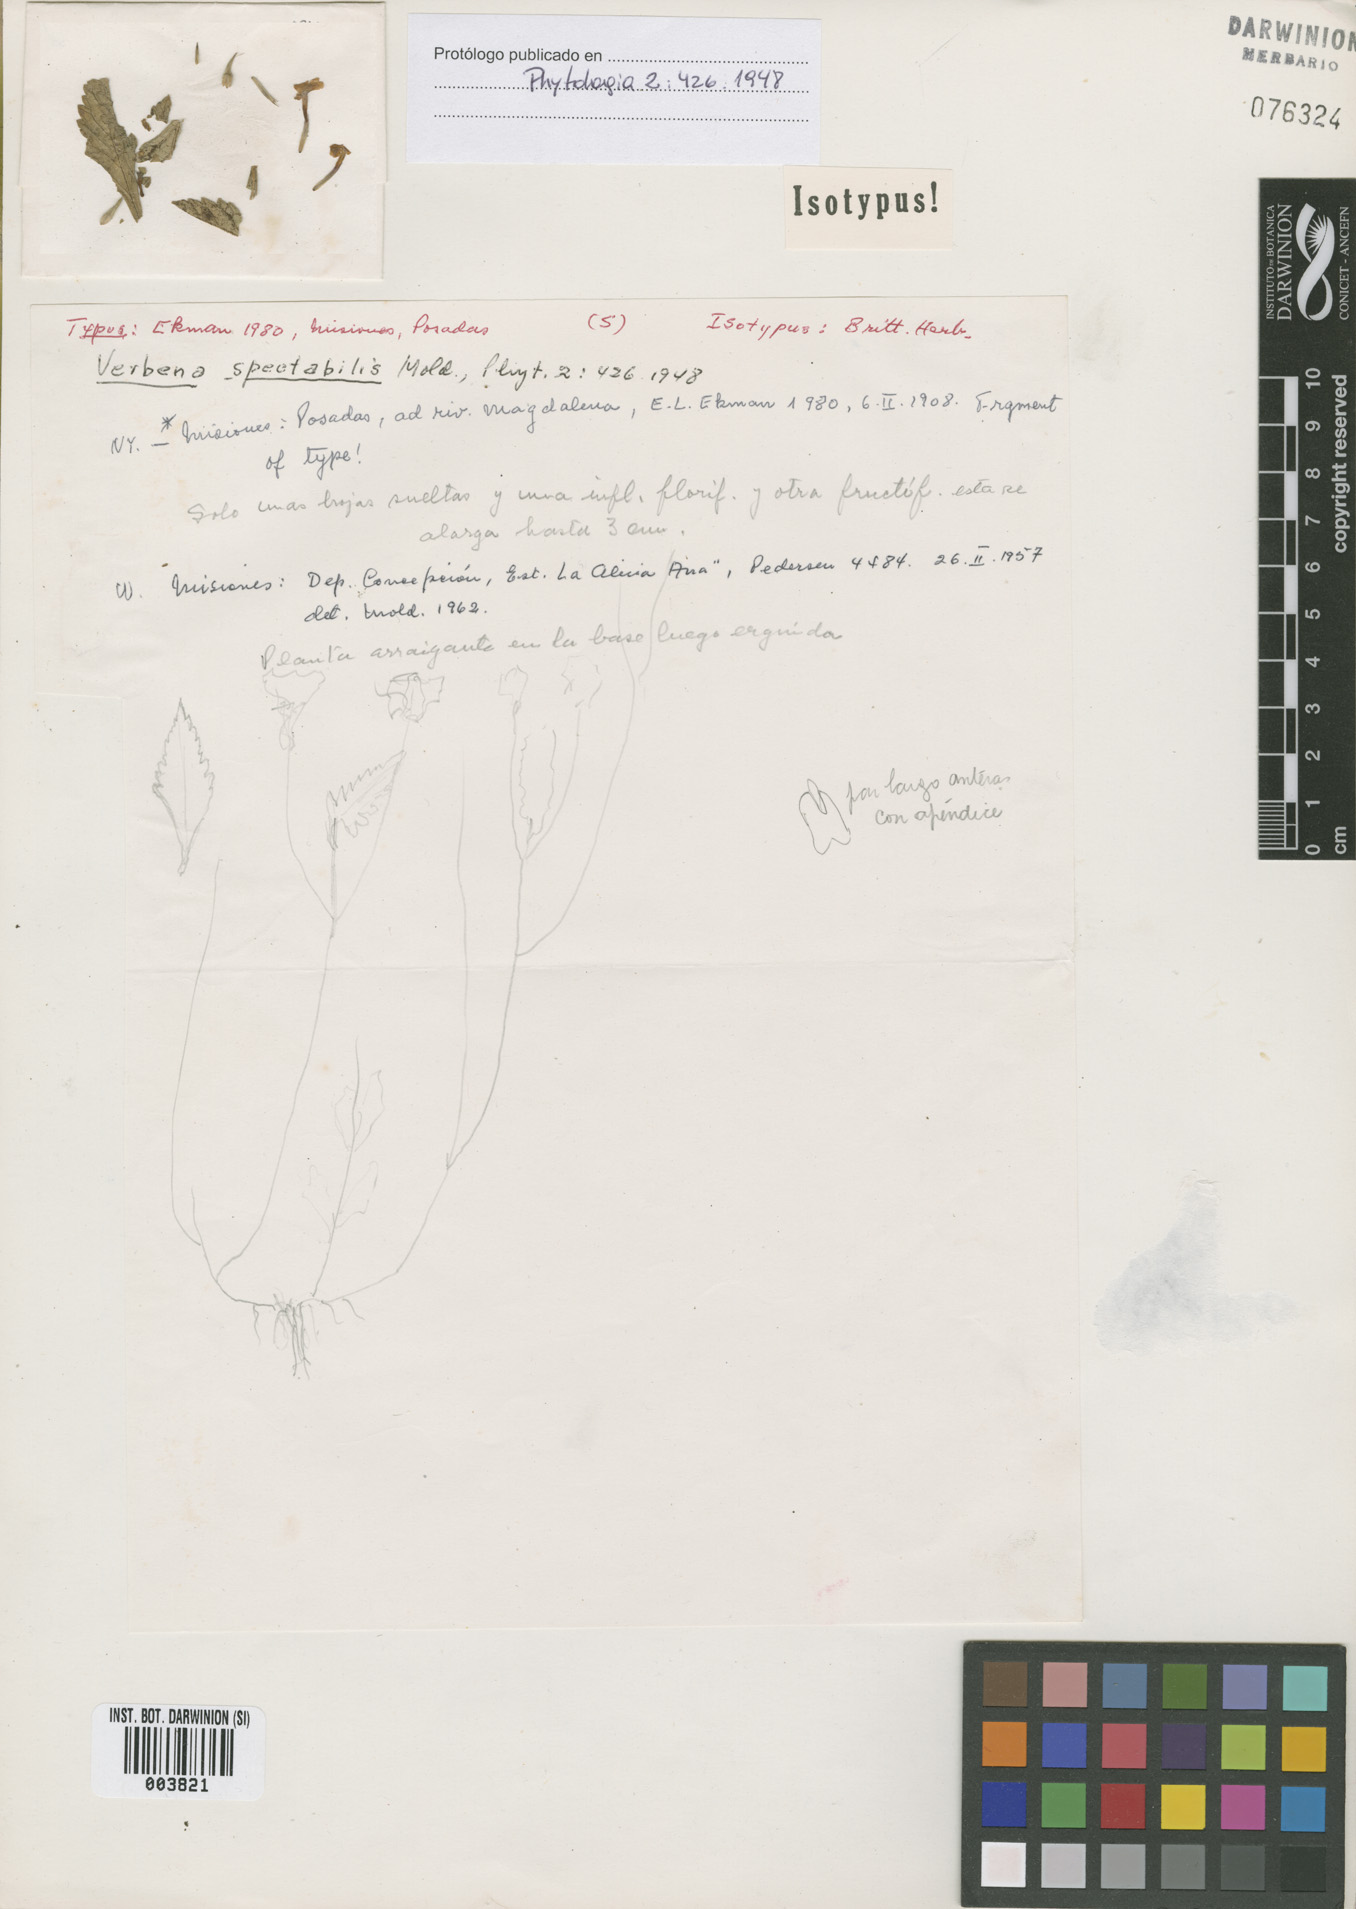 Protólogo publicado en
Phytologia 2: 426. 1948
DARWINION
HERBARIO
076324
Isotypus!
INSTITUTO DE BOTANICA
DARWINION
CONICET - ANCEFN
Typus: Ekman 1980, Misiones, Posadas (S) Isotypus: Britt. Herb.
Verbena spectabilis Mold., Phyt. 2: 426. 1948
NY. * Misiones: Posadas, ad riv. Magdalena, E.L. Ekman 1980, 6.II.1908. Frgment
of type!
Solo unas hojas sueltas y una infl. florif. y otra fructif. esta se
alarga hasta 3 cm.
W. Misiones: Dep. Concepción, Est. La Alicia Ana", Pedersen 4484. 26.II.1957
det. Mold. 1962.
Planta arraigante en la base luego erguida
par largo anteras
con apéndice
0 1 2 3 4 5 6 7 8 9 10
cm
copyright reserved
INST. BOT. DARWINION (SI)
003821